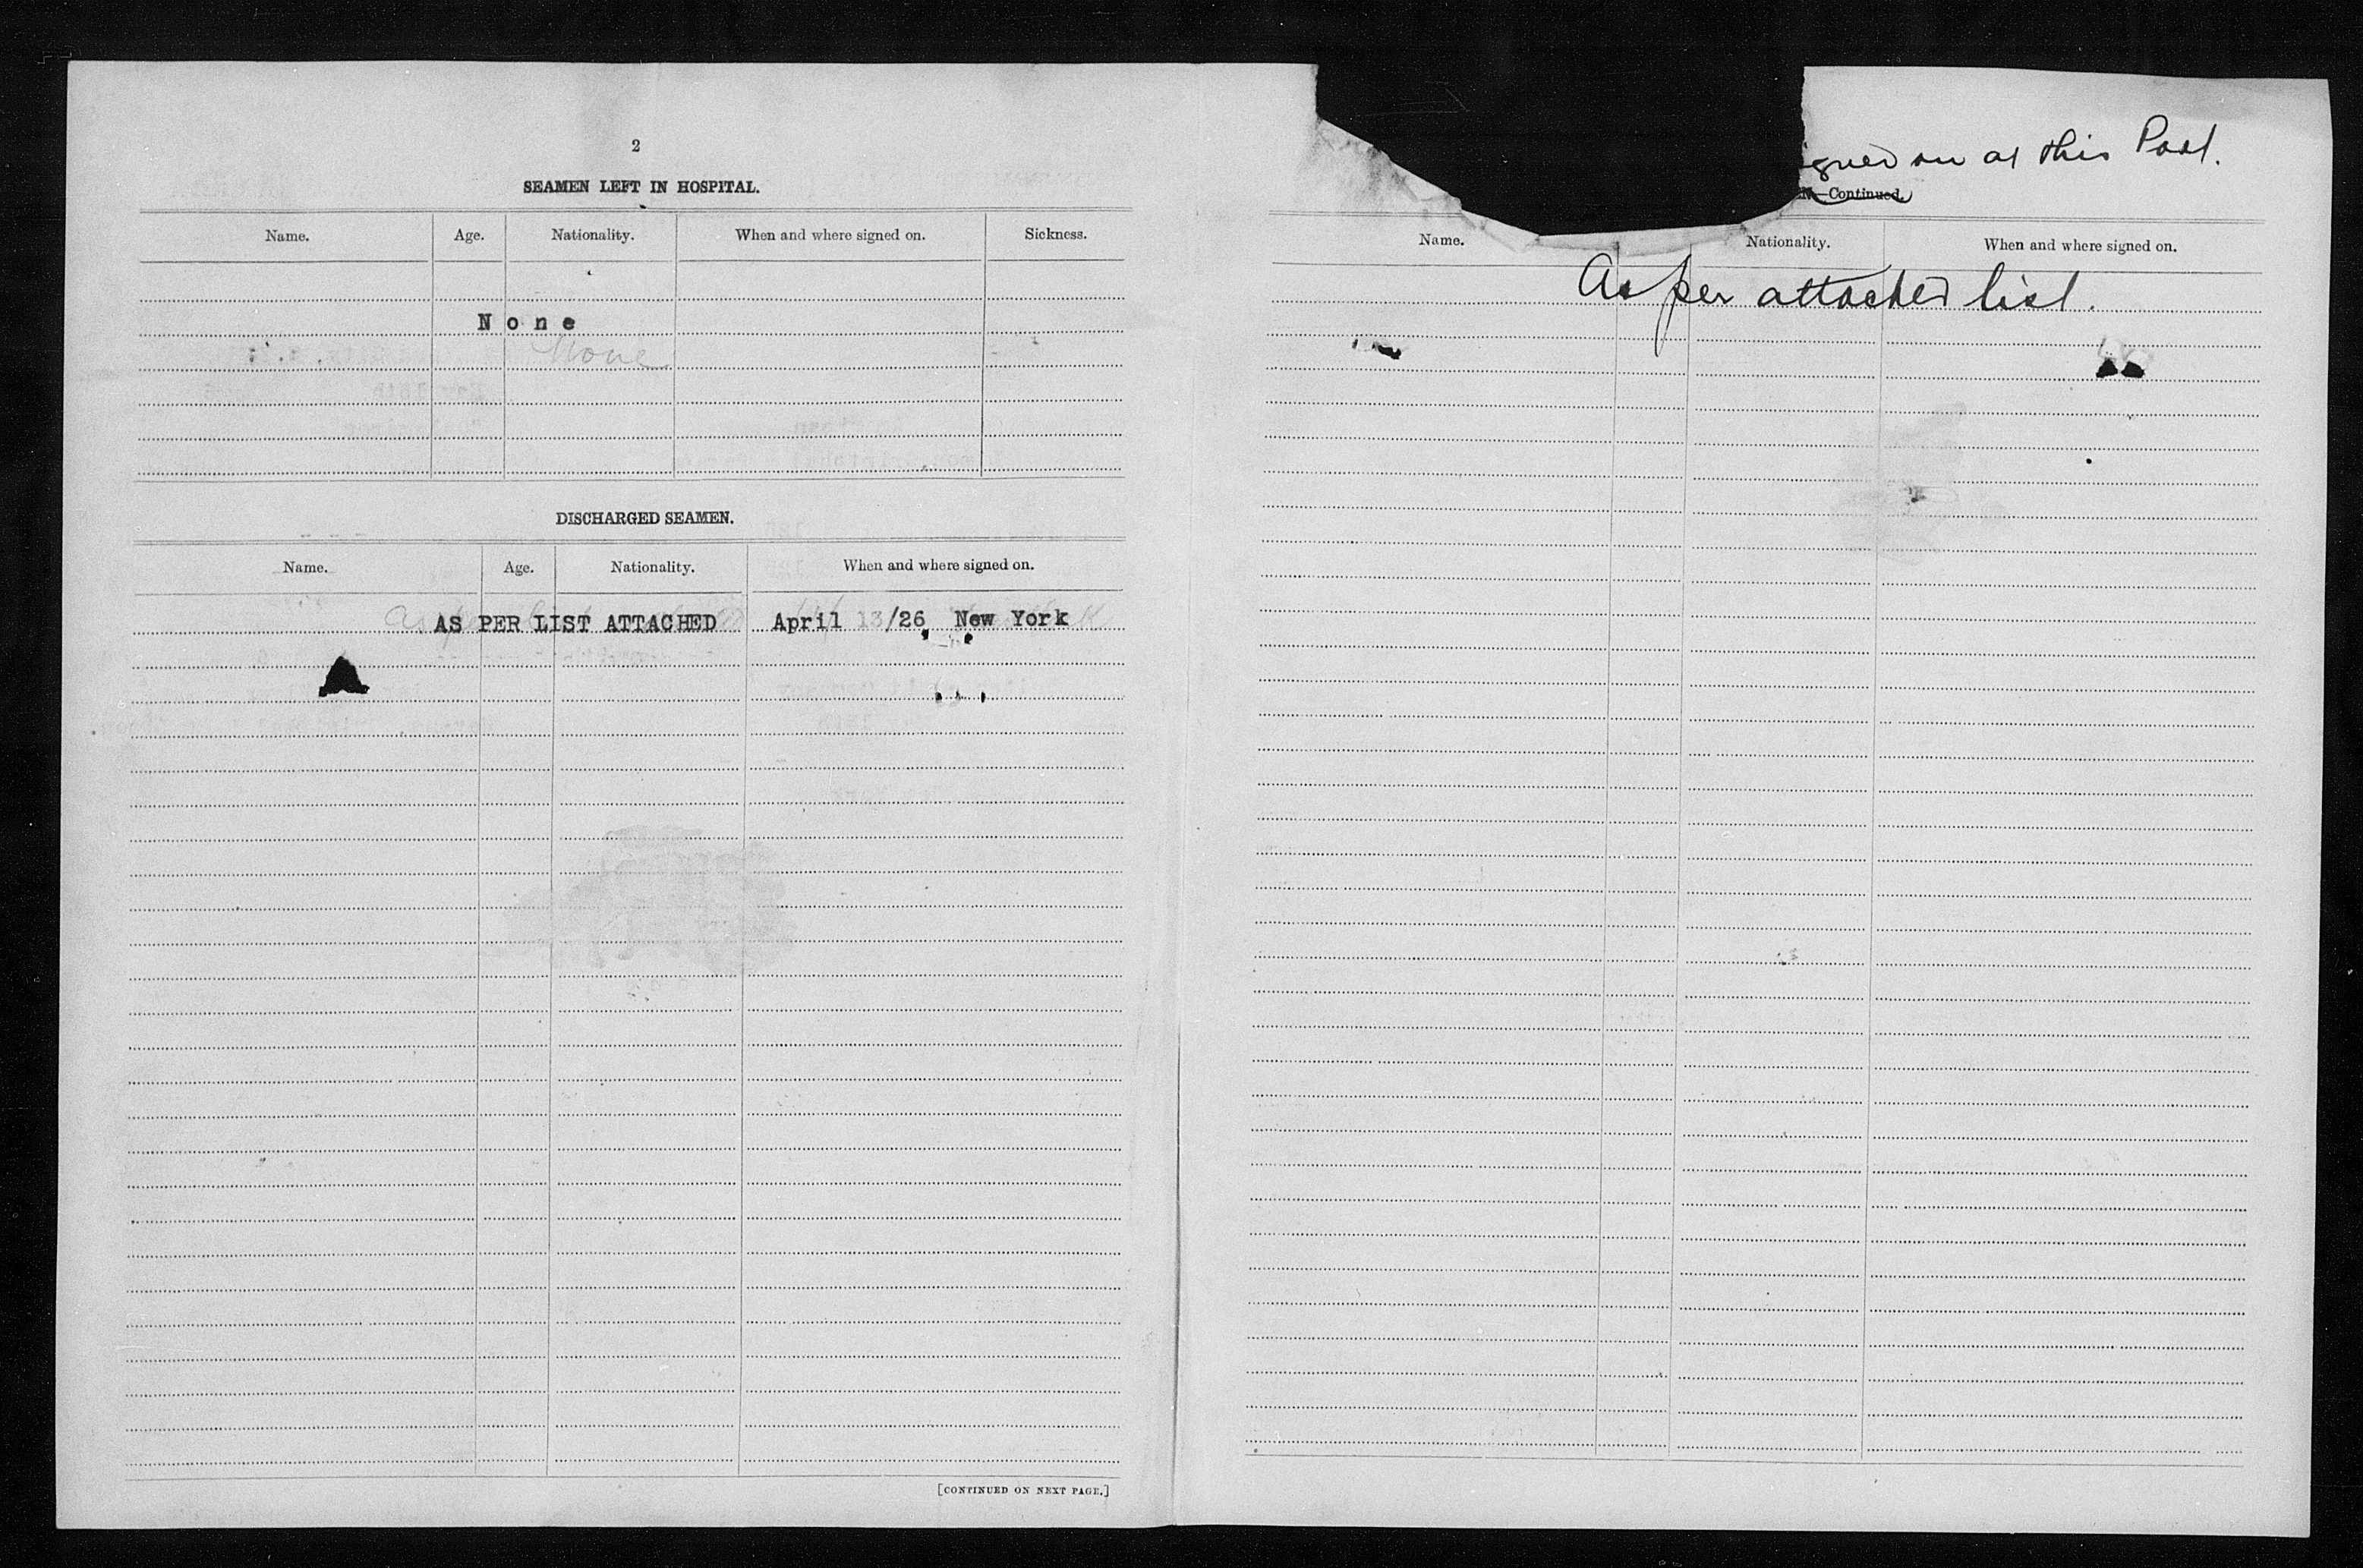 2
SEAMEN LEFT IN HOSPITAL.
Name. Age. Nationality. When and where signed on. Sickness.
None
None
DISCHARGED SEAMEN.
Name. Age. Nationality. When and where signed on.
AS PER LIST ATTACHED April 13/26 New York
[CONTINUED ON NEXT PAGE.]
igned on at this Port.
—Continued.
Name. Nationality. When and where signed on.
As per attached list.